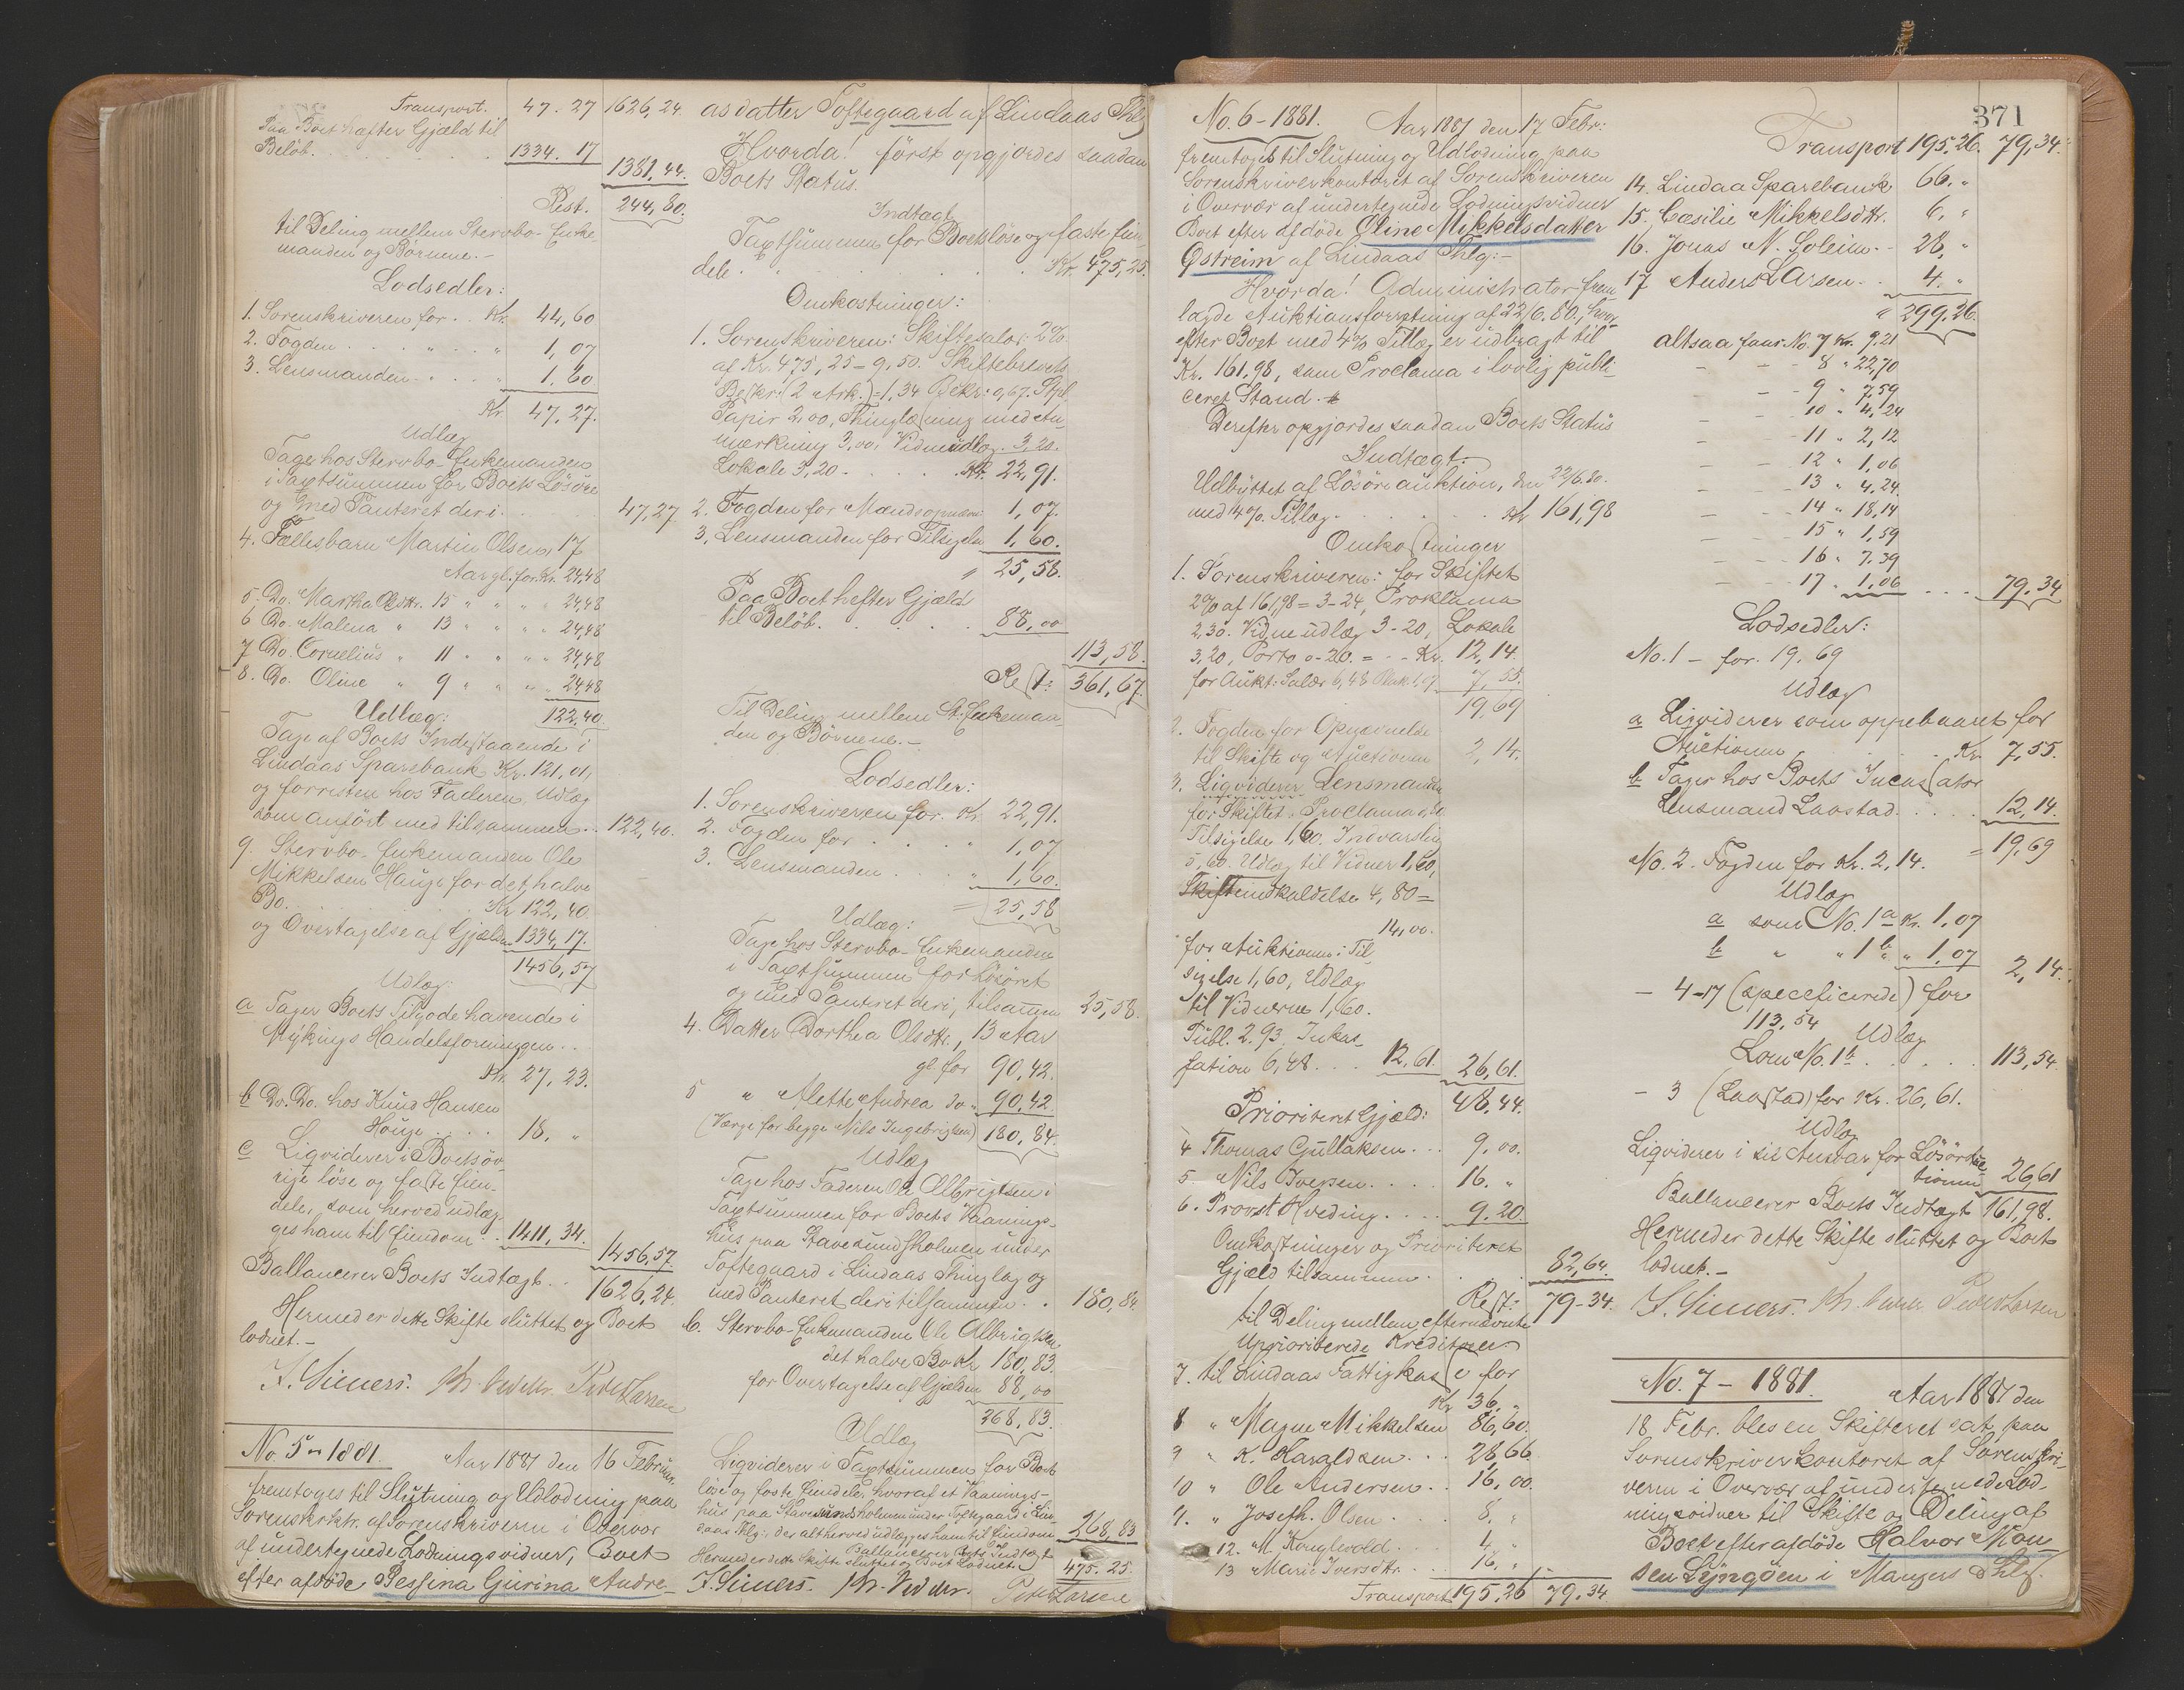 Transport. 47.27 1626,24
Paa Boet hefter Gjæld til
Beløb. 1334.17
1381.44.
Rest. 244,80.
til Deling mellem Stervbo-Enke-
manden og Børnene.-
Lodsedler:
1. Sorenskriveren for. Kr. 44,60
2. Fogden " " 1,07
3. Lensmanden " 1.60
Kr. 47,27.
Udlæg
Tager hos Stervbo-Enkemanden
i Taxtsummen for Boets Løsøre
og med Panteret deri. 47,27
4. Fællesbarn Martin Olsen 17
Aar gl. for Kr. 24,48
5. Do. Martha Olsdtr. 15 " " " 24,48
6 Do. Malena " 13 " " " 24,48
7 Do. Cornelius " 11 " " " 24,48
8. Do. Oline " 9 " " " 24,48
Udlæg: 122,40.
Tage af Boets Indestaaende i
Lindaas Sparebank Kr. 121,01,
og forresten hos Faderen Udlæg
som anført med tilsammen.. 122,40.
9. Stervbo-Enkemanden Ole
Mikkelsen Hauge for det halve
Bo. Kr. 122,40.
og Overtagelse af Gjælden 1334,17.
1456,57
Udlæg:
a Tager Boets Tilgodehavende i
Mykings Handelsforeningen..
Kr. 27,23.
b Do. Do. hos Knud Hansen
Houge 18, "
c Liqviderer i Boets øv-
rige løse og faste Eien-
dele, som herved udlæg-
ges ham til Eiendom.. 1411,34.
1456,57
Ballancerer Boets Indtægt.. 1626,24.
Hermed er dette Skifte sluttet og Boet
lodnet.-
No. 5 - 1881. Aar 1881 den 16 Februar
fremtoges til Slutning og Udlodning paa
Sorenskrktr. af Sorenskriveren i Overvær
af undertegnede Lodningsvidner, Boet
efter afdøde Bessina Gurina Andre-
asdatter Toftegaard af Lindaas Thlg
Hvorda! først opgjordes saadan
Boets Status.
Indtægt
Taxtsummen for Boets løse og faste Eien-
dele Kr. 475,25.
Omkostninger:
1. Sorenskriveren: Skiftesalar: 2%
af Kr. 475,25 = 9,50. Skiftebrevets
Beskr: (2 Ark.) = 1,34 0,67. Stpl.
Papir 2,00, Thinglæsning med An-
mærkning 3,00, Vidneudlæg. 3,20.
Lokale 3,20 - Kr. 22,91.
2. Fogden for Mændsopnævn: 1,07.
3. Lensmanden for Tilsigelse 1,60.
" 25,58.
Paa Boet hefter Gjæld
til Beløb. 88,00
113,58.
Rest: 361,67.
Til Deling mellem St: Enkeman-
den og Børnene.-
Lodsedler:
1. Sorenskriveren for. Kr. 22,91.
2. Fogden for " 1,07
3. Lensmanden " 1,60.
= 25,58
Udlæg:
Tage hos Stervbo-Enkemanden
i Taxtsummen for Løsøret
og med Panteret deri, tilsammen 25,58.
4. Datter Dorthea Olsdtr., 13 Aar
gl. for 90,42.
5 " Alette Andrea do " 90,42
(Værge for begge Nils Ingebrigtsen) 180,84.
Udlæg
Tage hos Faderen Ole Albrigtsen i
Taxtsummen for Boets Vaanings-
hus paa Stavesundsholmen under
Toftegaard i Lindaas Thinglag og
med Panteret deri tilsammen. . 180,84
6. Stervbo-Enkemanden Ole Albrigtsen
det halve Bo Kr. 180,83.
for Overtagelse af Gjælden 88,00
268,83.
Udlæg
Liqviderer i Taxtsummen for Boets
løse og faste Eiendele, hvoraf et Vaanings-
hus paa Stavesundsholmen under Toftegaard i Lin-
daas Thlg: der alt herved udlægges ham til Eiendom. 268,83
Ballancerer Boets Indtægt 475.25.
Hermed er dette Skifte sluttet og Boet Lodnet.
371
No. 6 - 1881. Aar 1881 den 17 Febr:
fremtoges til Slutning og Udlodning paa
Sorenskriverkontoret af Sorenskriveren
i Overvær af undertegnede Lodningsvidner
Boet efter afdøde Oline Mikkelsdatter
Østreim af Lindaas Thlg:-
Hvorda! Administrator frem-
lagde Auktionsforretning af 22/6.80, hvor-
efter Boet med 4% Tillæg er udbragt til
Kr. 161.98, sam Proclama i lovlig publi-
ceret Stand.
Derefter opgjordes saadan Boets Status
Indtægt.
Udbyttet af Løsøreauktion, den 22/6.80.
med 4% Tillæg Kr 161,98
Omkostninger
1. Sorenskriveren: for Skiftet
2% af 161,98 = 3-24, Proklama
2,30. Vidneudlæg 3-20, Lokale
3,20, Porto 0-20. = - Kr. 12,14.
for Aukt: Salær 6,48 7,55.
19,69
2. Fogden for Opnævnelse
til Skifte og Auctionen 2,14.
3. Liqviderer Lensmanden
for Skiftet, Proclama
Tilsigelse 1,60. Indvarsling
5,60. Udlæg til Vidner 1,60,
Skifteindkaldelse 4,80 =
14,00.
for Auktionen: Til-
sigelse 1,60, Udlæg
til Vidnerne 1,60.
Publ. 2.93. Inkas-
sation 6,48... 12,61. 26,61.
48,44.
Prioriteret Gjæld:
4 Thomas Gullaksen.. 9.00.
5. Nils Iversen.. 16. "
6. Provst Hveding... 9.20.
Omkostninger og Prioriteret
Gjæld tilsammen. 82,64.
Rest: 79-34.
til Deling mellem efternævnte
Uprioriterede Kreditorer.
7. til Lindaas Fattigkasse for
Kr 36, "
8 " Magne Mikkelsen 86,60.
9 " K. Haraldsen... 28,66
10 " Ole Andersen.. 16,00.
11. " Joseph. Olsen. 8, "
12. M. Konglevold.. 4, "
13 Marie Iversdtr... 16, "
Transport 195,26 79.34
Transport 195,26. 79,34.
14. Lindaas Sparebank 66, "
15. Cæsilie Mikkelsdtr. 6, "
16. Jonas N. Soleim. 28, "
17 Anders Larsen.. 4. "
" 299.26.
altsaa faar No. 7 Kr. 9.21
- - 8 " 22,70
- - 9 " 7,59
- - 10 " 4,24
- - 11 " 2,12
- - 12 " 1,06
- - 13 " 4,24
- - 14 " 18,14
- - 15 " 1,59
- - 16 " 7.39
- - 17 " 1.06 ... 79.34
Lodsedler:
No. 1 - for. 19.69
Udlæg
a Liqviderer som oppebaaret for
Auctionen Kr. 7,55.
b Tager hos Boets Incassator
Lensmand Laastad. 12,14.
= 19,69
No. 2. Fogden for Kr. 2,14.
Udlæg
a som No. 1 a Kr. 1,07
b " " 1 b " " 1,07 2,14.
- 4-17 (speceficerede) for
113,54 Udlæg
Som No. 1 b 113,54.
- 3 (Laastad) for Kr. 26,61.
Udlæg
Liqviderer i sit Ansvar for Løsøreauc-
tionen 26,61
Ballancerer Boets Indtægt 161,98.
Hermed er dette Skifte sluttet og Boet
lodnet.-
No. 7 - 1881. Aar 1881 den
18. Febr. blev en Skifteret sat paa
Sorenskriverkontoret af Sorenskri-
veren i Overvær af undertegnede Lod-
ningsvidner til Skifte og Deling af
Boet efter afdøde Halvor Mon-
sen Lyngøen i Mangers Thlg.